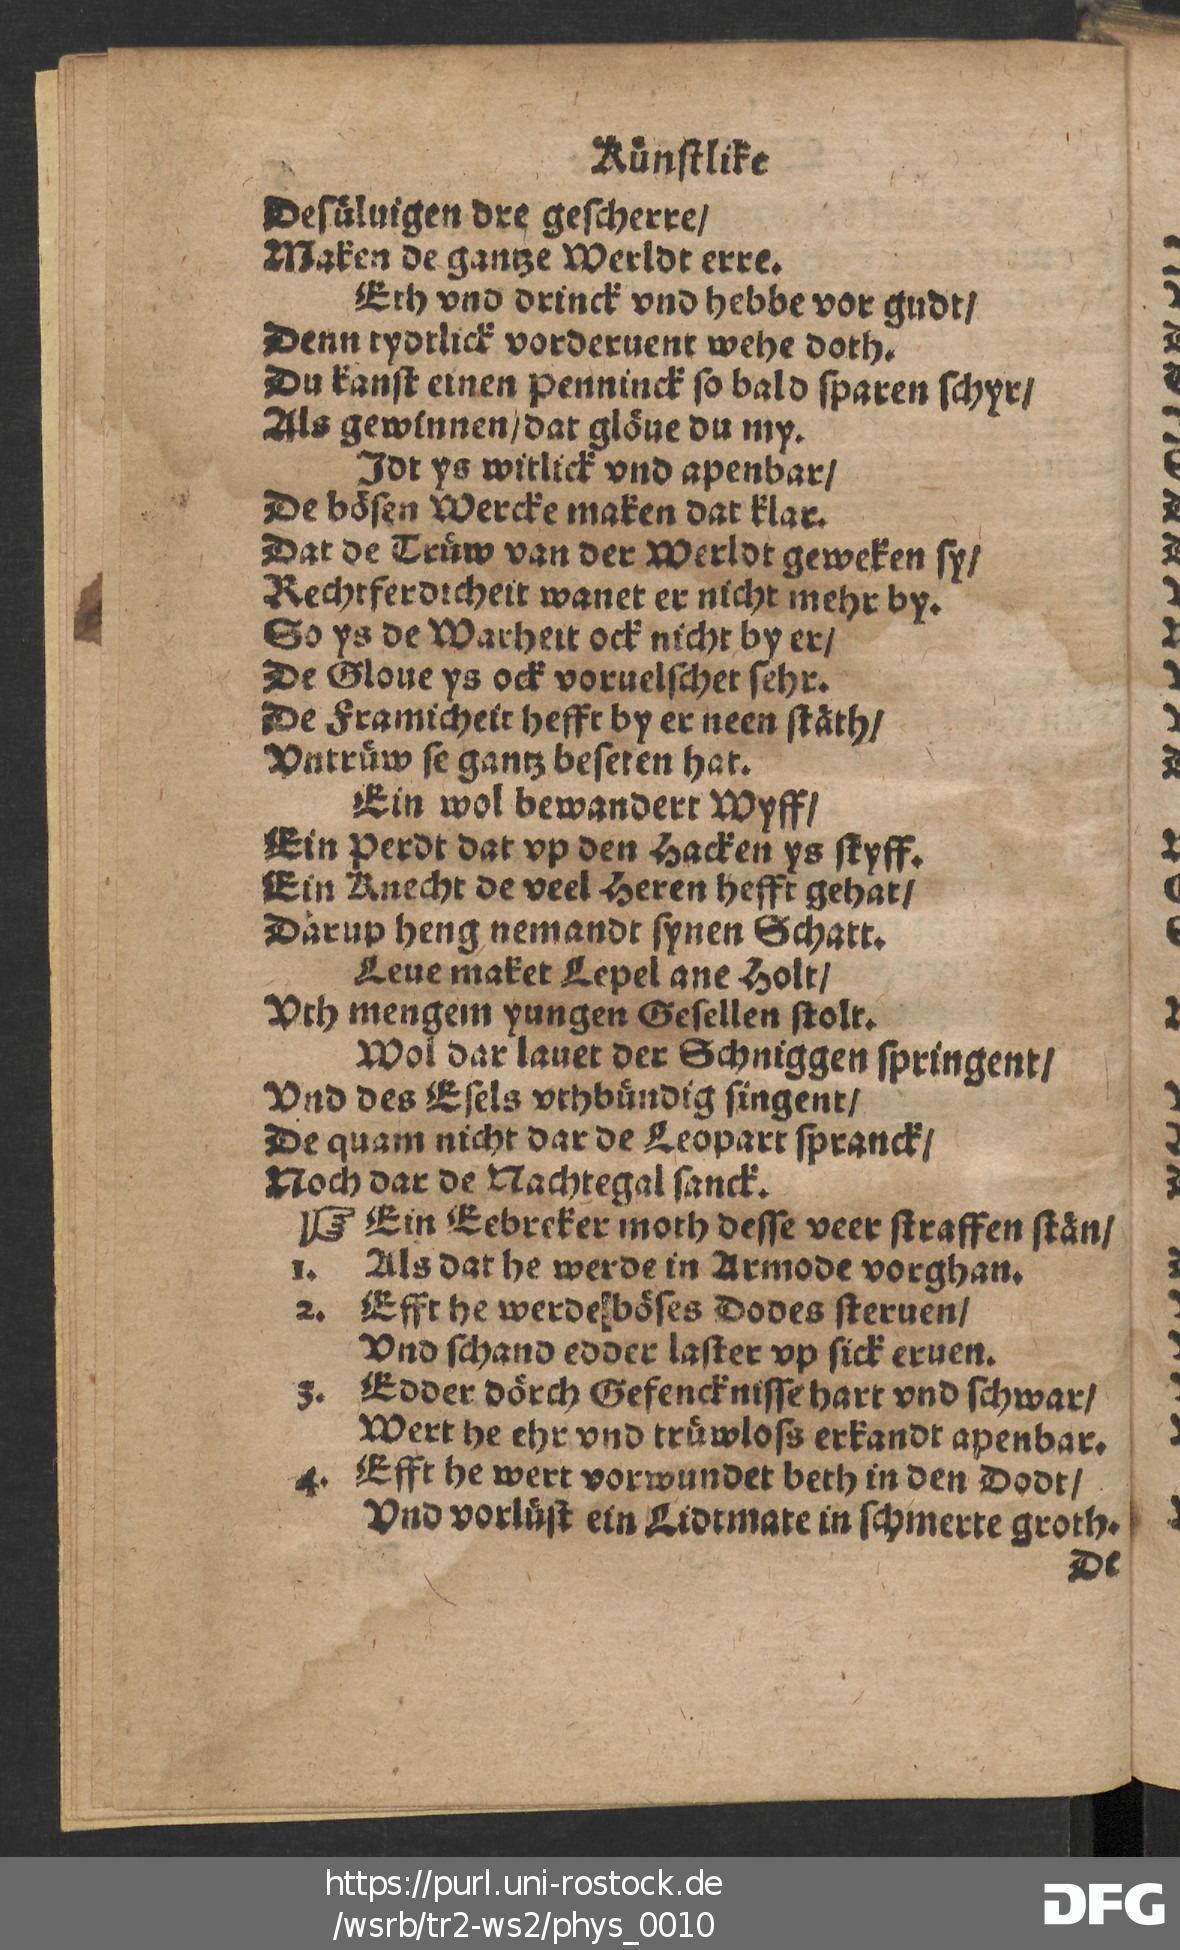 Künſtlike
Deſüluigen dre geſcherre/
Maken de gantze Werldt erre.
Eth vnd drinck vnd hebbe vor gudt/
Denn tydtlick vorderuent wehe doth.
Du kanſt einen Penninck ſo bald ſparen ſchyr/
Als gewinnen/dat glöue du my.
Jdt ys witlick vnd apenbar/
De böſen Wercke maken dat klar.
Dat de Trüw van der Werldt geweken ſy/
Rechtferdicheit wanet er nicht mehr by.
So ys de Warheit ock nicht by er/
De Gloue ys ock voruelſchet ſehr.
De Framicheit hefft by er neen ſtäth/
Vntrüw ſe gantz beſeten hat.
Ein wol bewandert Wyff/
Ein Perdt dat vp den Hacken ys ſtyff.
Ein Knecht de veel Heren hefft gehat/
Darup heng nemandt ſynen Schatt.
Leue maket Lepel ane Holt/
Vth mengem yungen Geſellen ſtolt.
Wol dar lauet der Schniggen ſpringent/
Vnd des Eſels vthbündig ſingent/
De quam nicht dar de Leopart ſpranck/
Noch dar de Nachtegal ſanck.
☞ Ein Eebreker moth deſſe veer ſtraffen ſtän/
1. Als dat he werde in Armode vorghan.
2. Efft he werde böſes Dodes ſteruen/
Vnd ſchand edder laſter vp ſick eruen.
3. Edder dörch Gefenckniſſe hart vnd ſchwar/
Wert he ehr vnd trüwloſs erkandt apenbar.
4. Efft he wert vorwundet beth in den Dodt/
Vnd vorlüſt ein Lidtmate in ſchmerte groth.
De
https://purl.uni-rostock.de
/wsrb/tr2-ws2/phys_0010
DFG